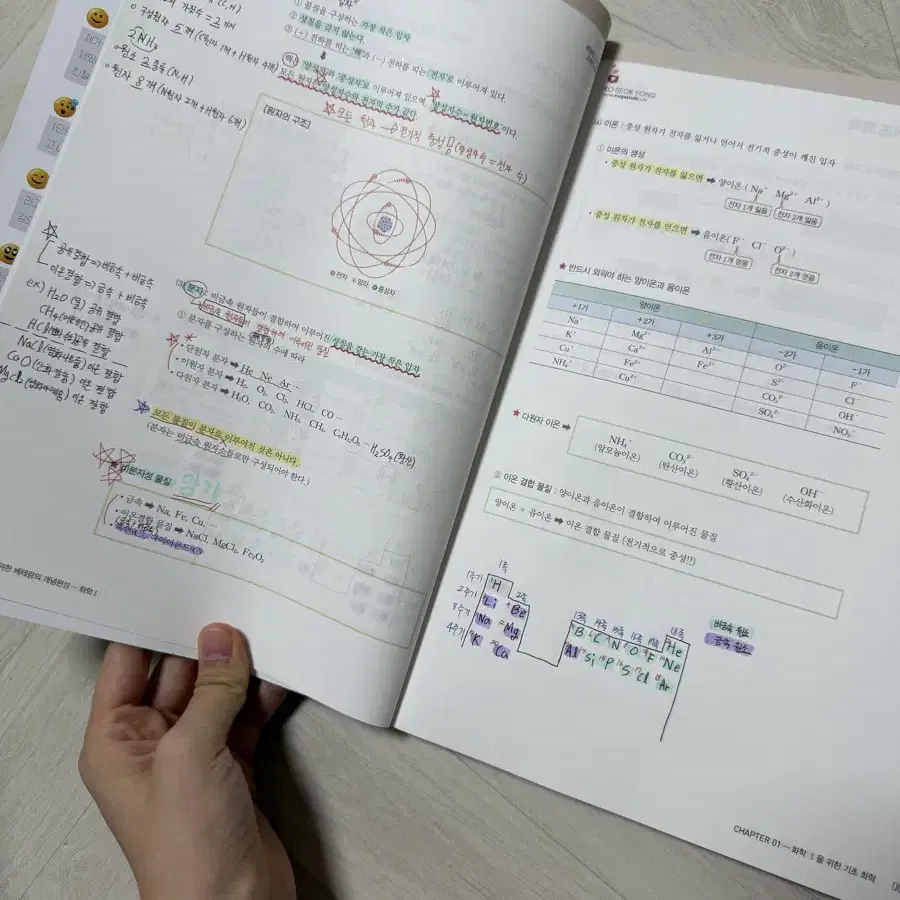 가짓수 = 2가지
o 구성원자 5개 (C원자 1개 + H원자 4개)
2NH₃
o 원소 2종류 (N, H)
o 원자 8개 (N원자 2개 + H원자 6개)
① 물질을 구성하는 가장 작은 입자
② 성질을 갖지 않는다.
③ (+) 전하를 띠는 '핵'과 (−) 전하를 띠는 '전자'로 이루어져 있다.
모든 원자 → 전기적 중성 (양성자수 = 전자 수)
[원자의 구조]
전자 양자 중성자
공유결합 ⇒ 비금속 + 비금속
이온결합 ⇒ 금속 + 비금속
ex) H₂O (물) 공유 결합
CH₄ (메테인) 공유 결합
HCl (염화수소) 공유 결합
NaCl (염화나트륨) 이온 결합
CaO (산화칼슘) 이온 결합
MgCl₂ (염화마그네슘) 이온 결합
(3) 분자 : 비금속 원자들이 결합하여 이루어진 성질을 갖는 가장 작은 입자
비금속 원자들이 결합하여 이루어진 물질
① 분자를 구성하는 원자의 수에 따라
• 단원자 분자 ➡ He Ne Ar ⋯
• 이원자 분자 ➡ H₂ O₂ Cl₂ HCl CO ⋯
• 다원자 분자 ➡ H₂O, CO₂ NH₃ CH₄ C₂H₅O₂ ⋯ H₂SO₄ (황산)
모든 물질이 분자로 이루어진 것은 아니다.
(분자는 비금속 원자들로만 구성되어야 한다.)
비분자성 물질
암기
• 금속 ➡ Na, Fe, Cu, ⋯
• 이온결합 물질 ➡ NaCl, MgCl₂, Fe₂O₃
위한 베테랑의 개념완성 — 화학 I
KO SEOK YONG
(4) 이온 : 중성 원자가 전자를 잃거나 얻어서 전기적 중성이 깨진 입자
① 이온의 생성
• 중성 원자가 전자를 잃으면 ➡ 양이온 ( Na⁺ Mg²⁺ Al³⁺ )
전자 1개 잃음 전자 2개 잃음
• 중성 원자가 전자를 얻으면 ➡ 음이온( F⁻ Cl⁻ O²⁻ )
전자 1개 얻음 전자 2개 얻음
★ 반드시 외워야 하는 양이온과 음이온
양이온 음이온
+1가 +2가 +3가 −2가 −1가
Na⁺ Mg²⁺ Al³⁺ O²⁻ F⁻
K⁺ Ca²⁺ Fe³⁺ S²⁻ Cl⁻
Cu⁺ Fe²⁺ CO₃²⁻ OH⁻
NH₄⁺ Cu²⁺ SO₄²⁻ NO₃⁻
★ 다원자 이온 ➡
NH₄⁺ CO₃²⁻ SO₄²⁻ OH⁻
(암모늄이온) (탄산이온) (황산이온) (수산화이온)
② 이온 결합 물질 : 양이온과 음이온이 결합하여 이루어진 물질
양이온 + 음이온 ➡ 이온 결합 물질 (전기적으로 중성!!)
1족 2족 13족 14족 15족 16족 17족 18족
1주기 H He
2주기 Li Be B C N O F Ne
3주기 Na Mg Al Si P S Cl Ar
4주기 K Ca
비금속 원소
금속 원소
CHAPTER 01 — 화학 I 을 위한 기초 화학